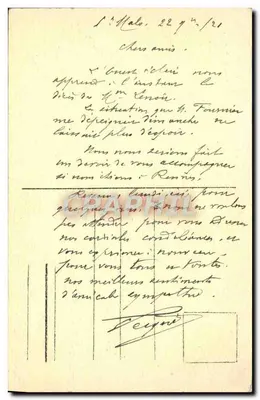 St Malo. 22 9bre /21
Chers amis.
L'Ouest Éclair nous
apprend à l'instant le
décès de Mme Lenoir.
La situation que M. Fournier
me dépeignait dimanche ne
laissait plus d'espoir.
Nous nous serions fait
un devoir de vous accompagner
si nous étions à Rennes.
pour
quelques jours ne voulons
pas attendre pour vous
nos cordiales condoléances, et
vous exprimer à nouveau
pour vous tous et toutes
nos meilleurs sentiments
d'amicale sympathie.